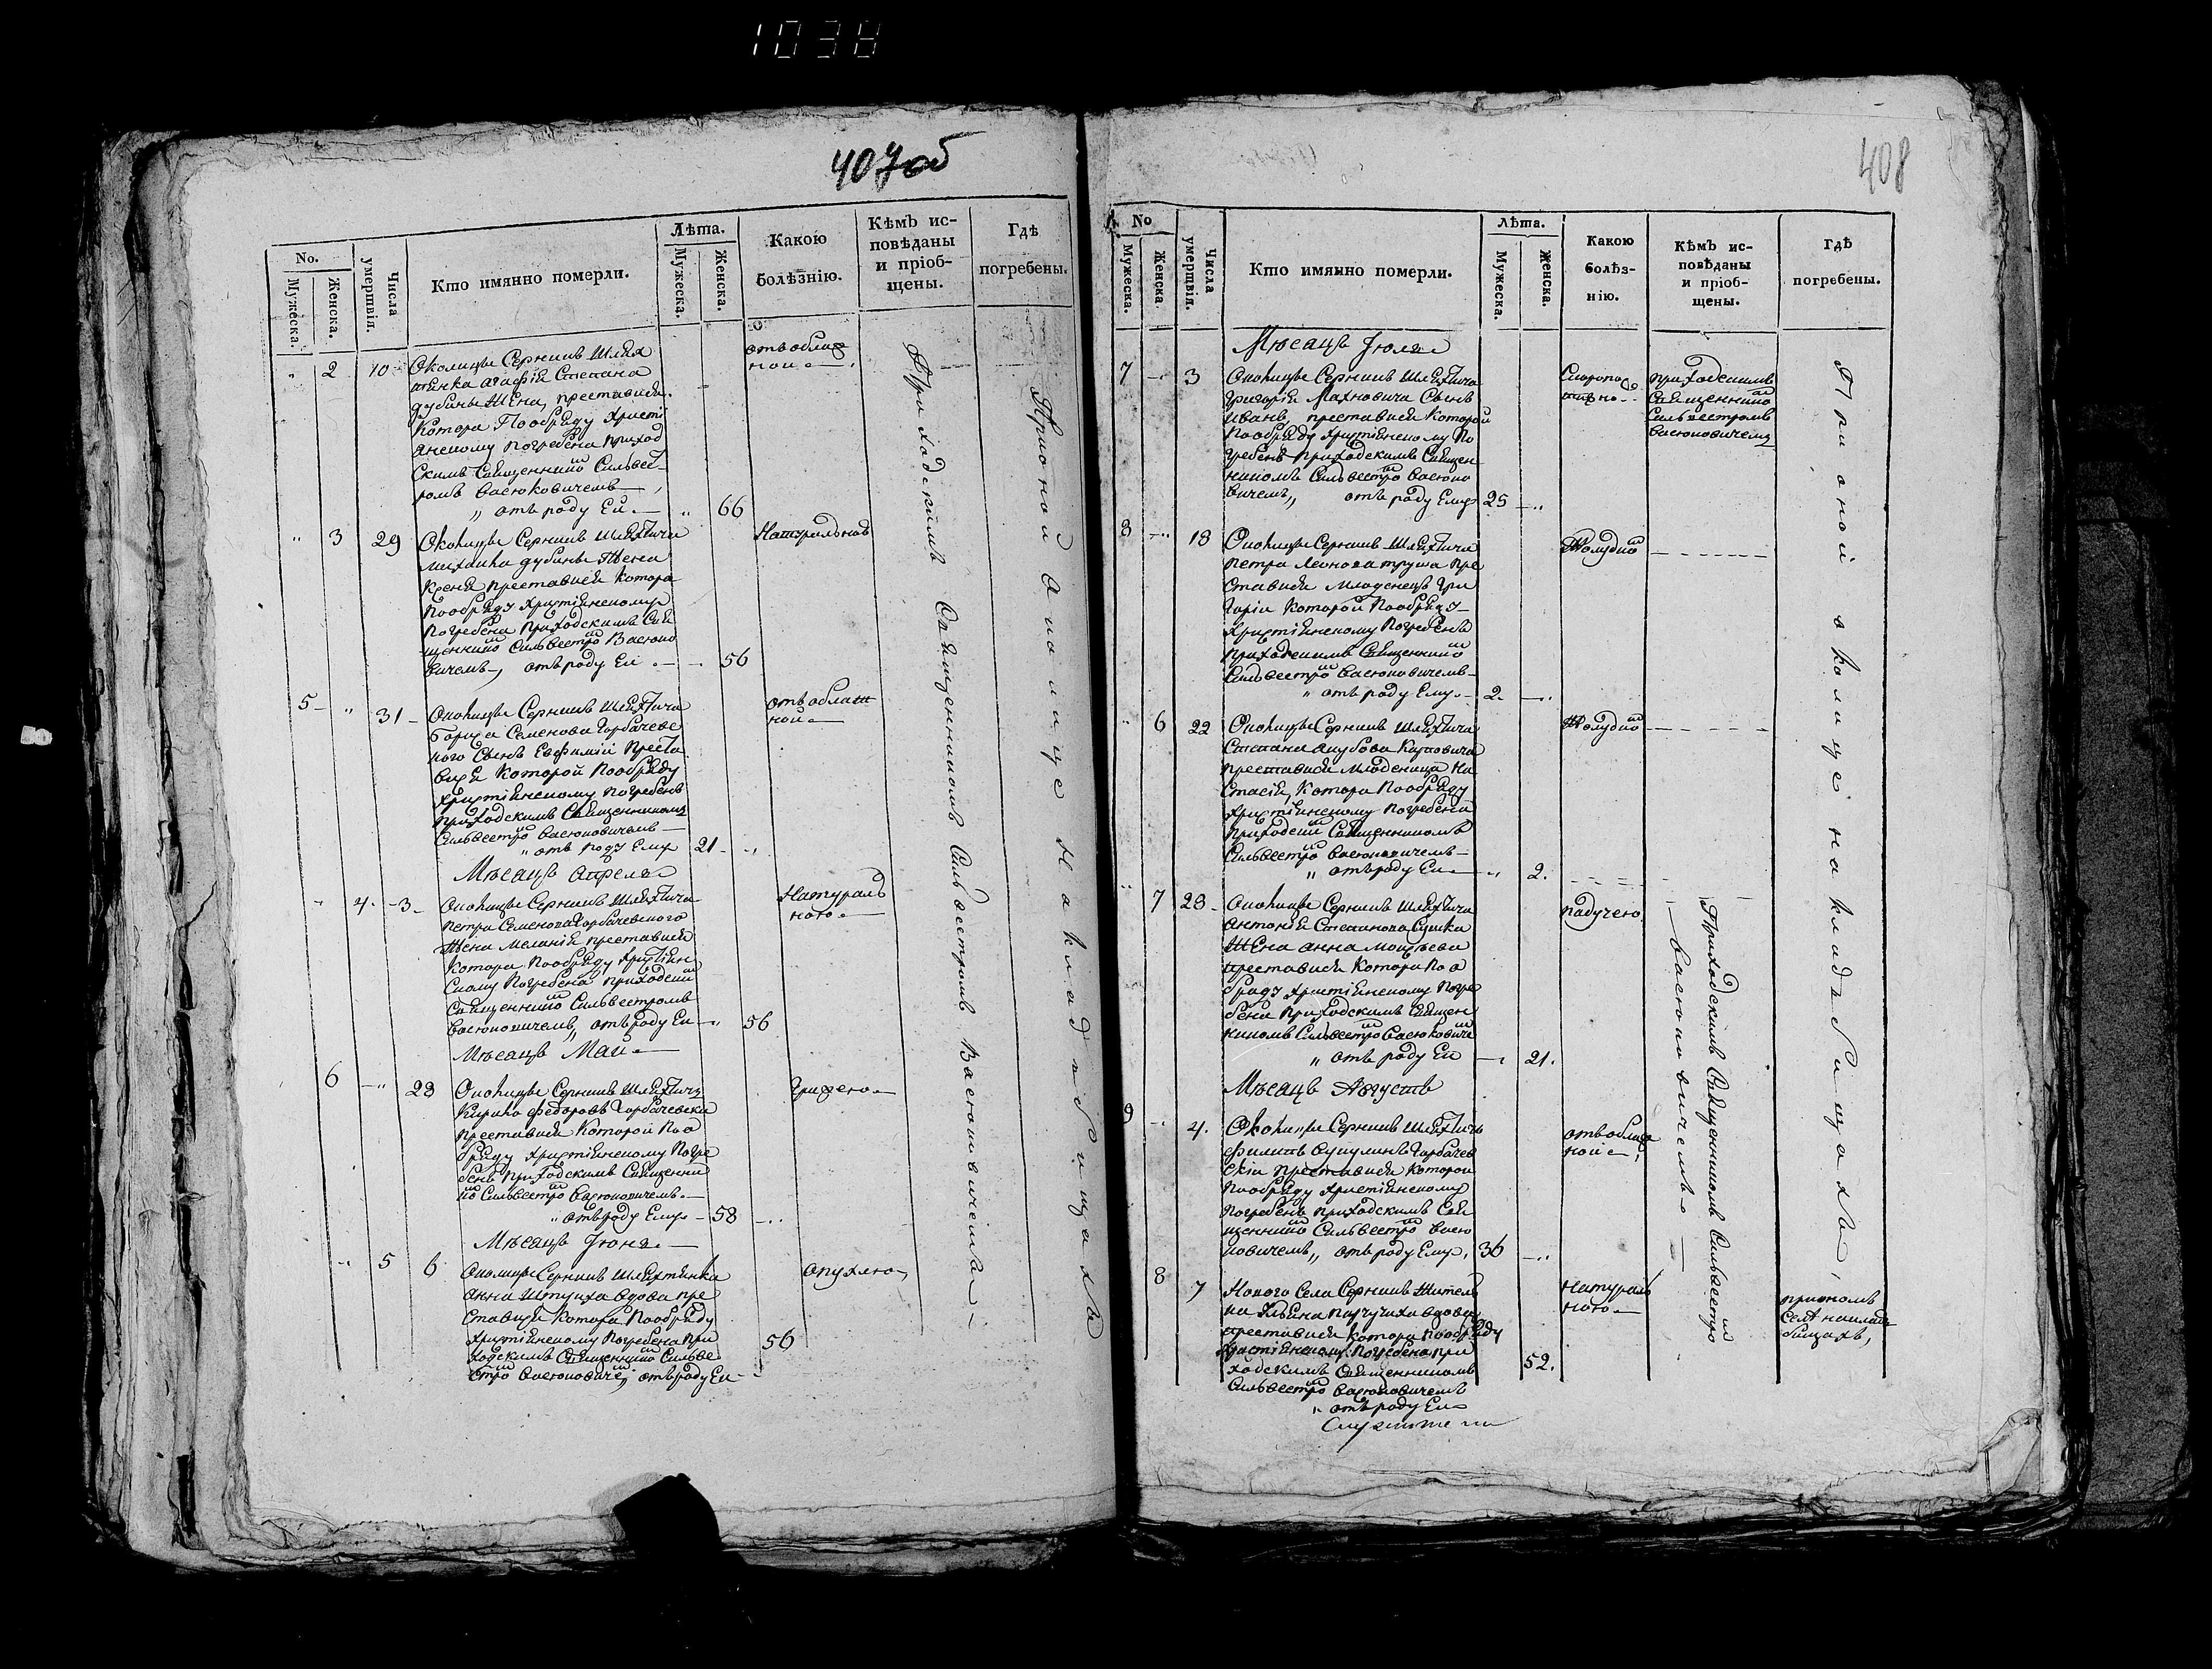 1038
407об
No.
Мужеска.
Женска.
Числа умертвія.
Кто имянно померли.
Лѣта.
Мужеска.
Женска.
Какою болѣзнію.
Кѣмъ ис-
повѣданы
и пріоб-
щены.
Гдѣ
погребены.
" 2 10
Околицы Сернишъ Шлях
тянка Агафія Степана
дубины Жена, преставися
Котора Пообряду Христі
янскому погребена приход
скимъ Священнико Сильвест
ромъ Васюковичемъ
" отъ роду Ей " 66
Приходскимъ Священникомъ Сильвестромъ Васюковичемъ
При оной Околице на кладъбищахъ
" 3 29
Околицы Сернишъ Шляхтича
михаила дубины Жена
Ксенія преставися Котора
пообряду Христіянскому
погребена приходскимъ Свя
щеннико Сильвестро Васюко
вичемъ, отъ роду Ей 56
5 " 31
Околицы Сернишъ Шляхтича
Семенова Горбачевс
кого Сынъ Евфимій преста
вися Которой пообряду
Христіянскому погребенъ
приходскимъ Священникомъ
Сильвестро Васюковичемъ
" отъ роду Ему 21 "
Мѣсяцъ Апреля
" 4 3
Околицы Сернишъ Шляхтича
петра Семенова Горбачевского
Жена Меланія преставися
Котора пообряду Христіян
скому погребена приходски
Священнико Сильвестромъ
Васюковичемъ, отъ роду Ей " 56
Натураль
ною
Мѣсяцъ Май
6 " 23
Околицы Сернишъ Шляхтичъ
Кирило Федоровъ Горбачевски
преставися Которой поо
бряду Христіянскому погре
бенъ приходскимъ Священни
ко Сильвестро Васюковичемъ
" отъ роду Ему 58 "
Мѣсяцъ Іюня
" 5 6
Околицы Сернишъ Шляхтянка
анна вдова пре
ставися Котора пообряду
Христіянскому погребена при
ходскимъ Священнико Сильве
стро Васюковиче, отъ роду Ей 56
опухлю
408
No
Мужеска.
Женска.
Числа умертвія.
Кто имянно померли.
Лѣта.
Мужеска.
Женска.
Какою
болѣз-
нію.
Кѣмъ ис-
повѣданы
и пріоб-
щены.
Гдѣ
погребены.
Мѣсяцъ Іюля
7 3
Околицы Сернишъ Шляхтича
Григорія Махновича Сынъ
Иванъ, преставися Которой
пообряду Христіянскому по
гребенъ приходскимъ Священ
никомъ Сильвестро Васюко
вичемъ, отъ роду Ему 25 "
приходскимъ
Священнико
Сильвестромъ
Васюковичемъ
При оной околице на кладъбищахъ,
8 " 18
Околицы Сернишъ Шляхтича
петра Леонова пре
ставися младенецъ Гри
горій Которой пообряду
Христіянскому погребенъ
приходскимъ Священнико
Сильвестро Васюковичемъ
" отъ роду Ему 2 "
" 6 22
Околицы Сернишъ Шляхтича
Степана
преставися младеница На
стасія, Котора пообряду
Христіянскому погребена
приходски Священникомъ
Сильвестро Васюковичемъ
" отъ роду Ей " 2.
" 7 23
Околицы Сернишъ Шляхтича
Антонія Степанова
Жена анна Моисѣева
преставися Котора поо
бряду Христіянскому погре
бена приходскимъ Священ
никомъ Сильвестро Васюковиче
" отъ роду Ей 21.
падучею
Приходскимъ Священникомъ Сильвестро
Васюковичемъ
Мѣсяцъ Августъ
9 4.
Околицы Сернишъ Шляхтичъ
Филипъ Горбачев
скій преставися Которой
пообряду Христіянскому
погребенъ приходскимъ Свя
щеннико Сильвестро Васю
ковичемъ, отъ роду Ему, 36 "
8 7
Нового Села Сернишъ Житель
ка вдова
преставися Котора пообряду
Христіянскому погребена при
ходскимъ Священникомъ
Сильвестро Васюковичемъ
" отъ роду Ей 52.
Натураль
ною
приономъ
Селѣ наклад
бищахъ,